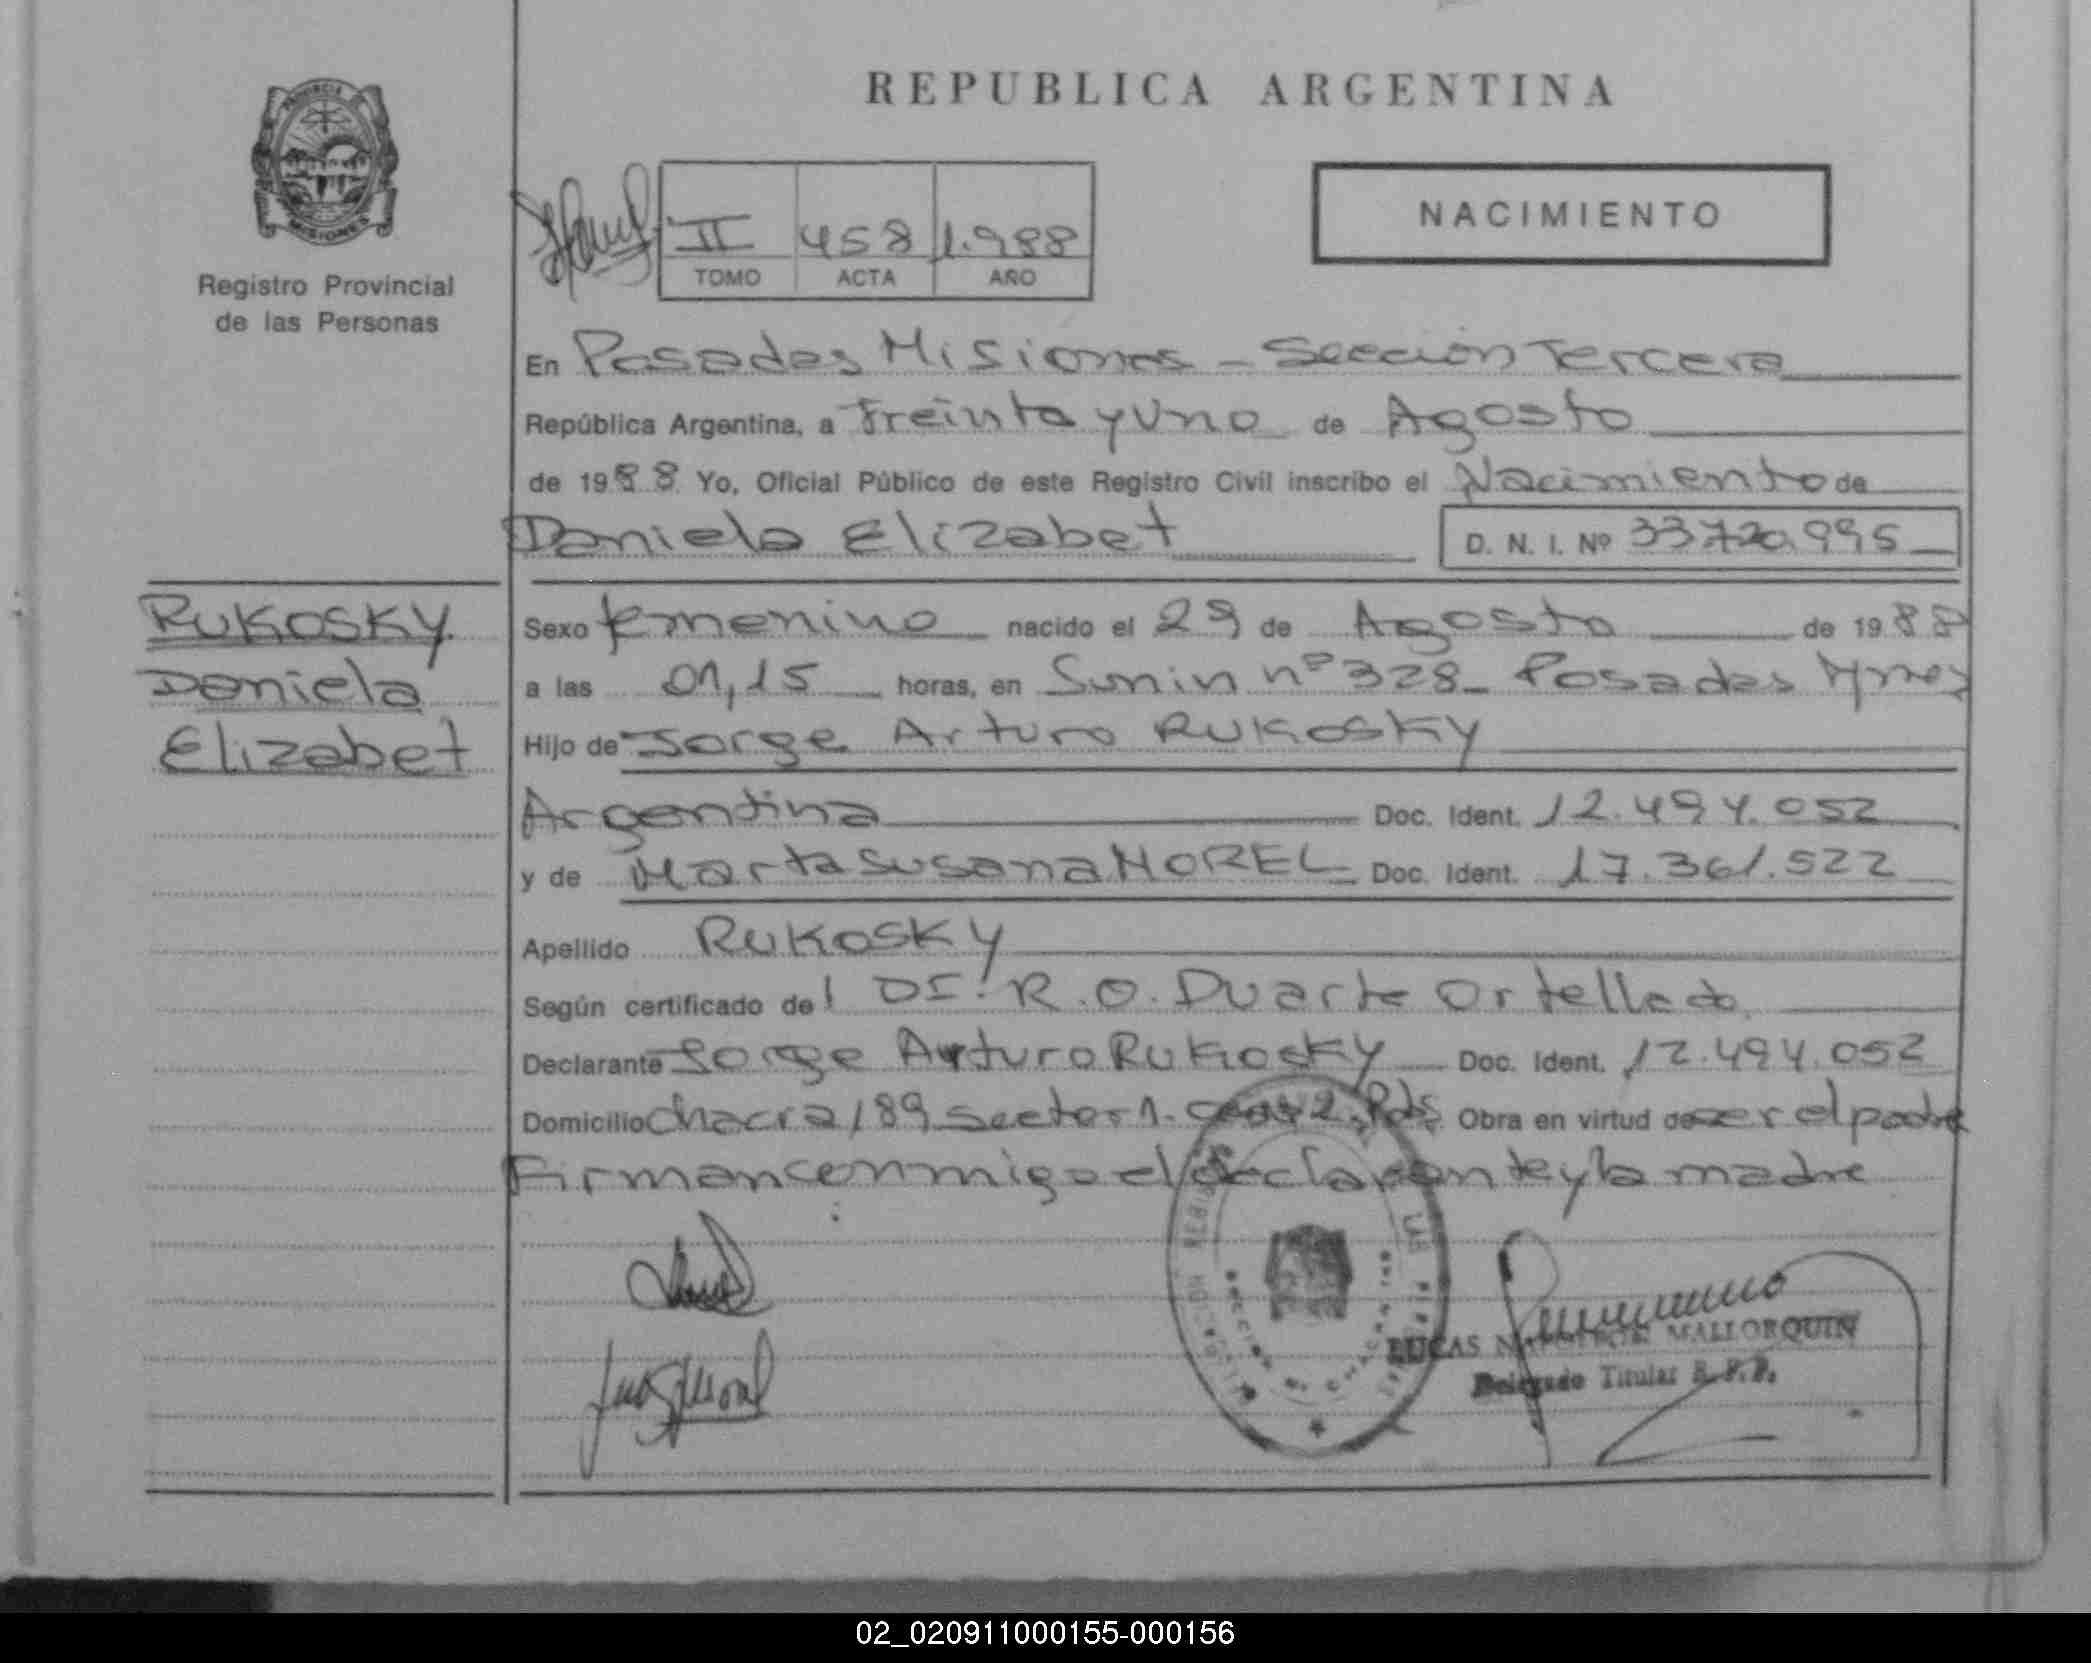 REPUBLICA ARGENTINA
PROVINCIA DE
MISIONES
Registro Provincial
de las Personas
II 458 1.988
TOMO ACTA AÑO
NACIMIENTO
En Posadas Misiones - Sección Tercera
República Argentina, a Treinta y Uno de Agosto
de 1988 Yo, Oficial Público de este Registro Civil inscribo el Nacimiento de
Daniela Elizabet D. N. I. Nº 33.720.995
RUKOSKY
Daniela
Elizabet
Sexo femenino nacido el 29 de Agosto de 1988
a las 01,15 horas, en Sunin nº 328 - Posadas
Hijo de Jorge Arturo RUKOSKY
Argentina Doc. Ident. 12.494.052
y de Marta Susana MOREL Doc. Ident. 17.361.522
Apellido RUKOSKY
Según certificado del Dr. R. O. Duarte Ortellado
Declarante Jorge Arturo RUKOSKY Doc. Ident. 12.494.052
Domicilio Chacra 189 sector 1- casa 2 Pds Obra en virtud de ser el padre
Firman conmigo el declarante y la madre
LUCAS NAPOLEON MALLORQUIN
Delegado Titular R. P. P.
02_020911000155-000156